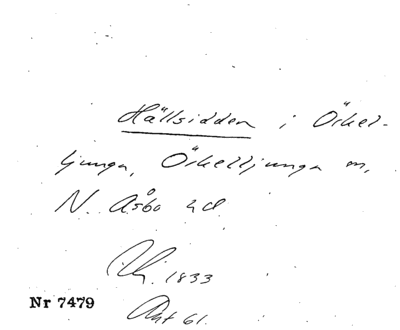 Hällsidden i Örkel-
ljunga, Örkelljunga m,
N. Åsbo hd
1833
Nr 7479
Akt 61.